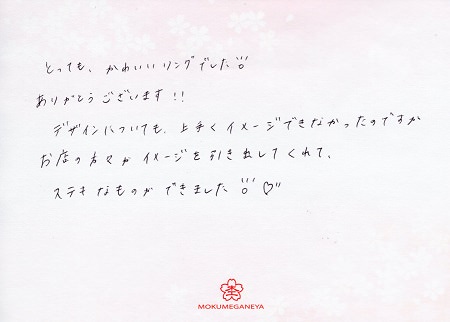 とっても、かわいいリングでした!!
ありがとうございます!!
デザインについても、上手くイメージできなかったのですが
お店の方々がイメージを引き出してくれて、
ステキなものができました!! ♡
MOKUMEGANEYA